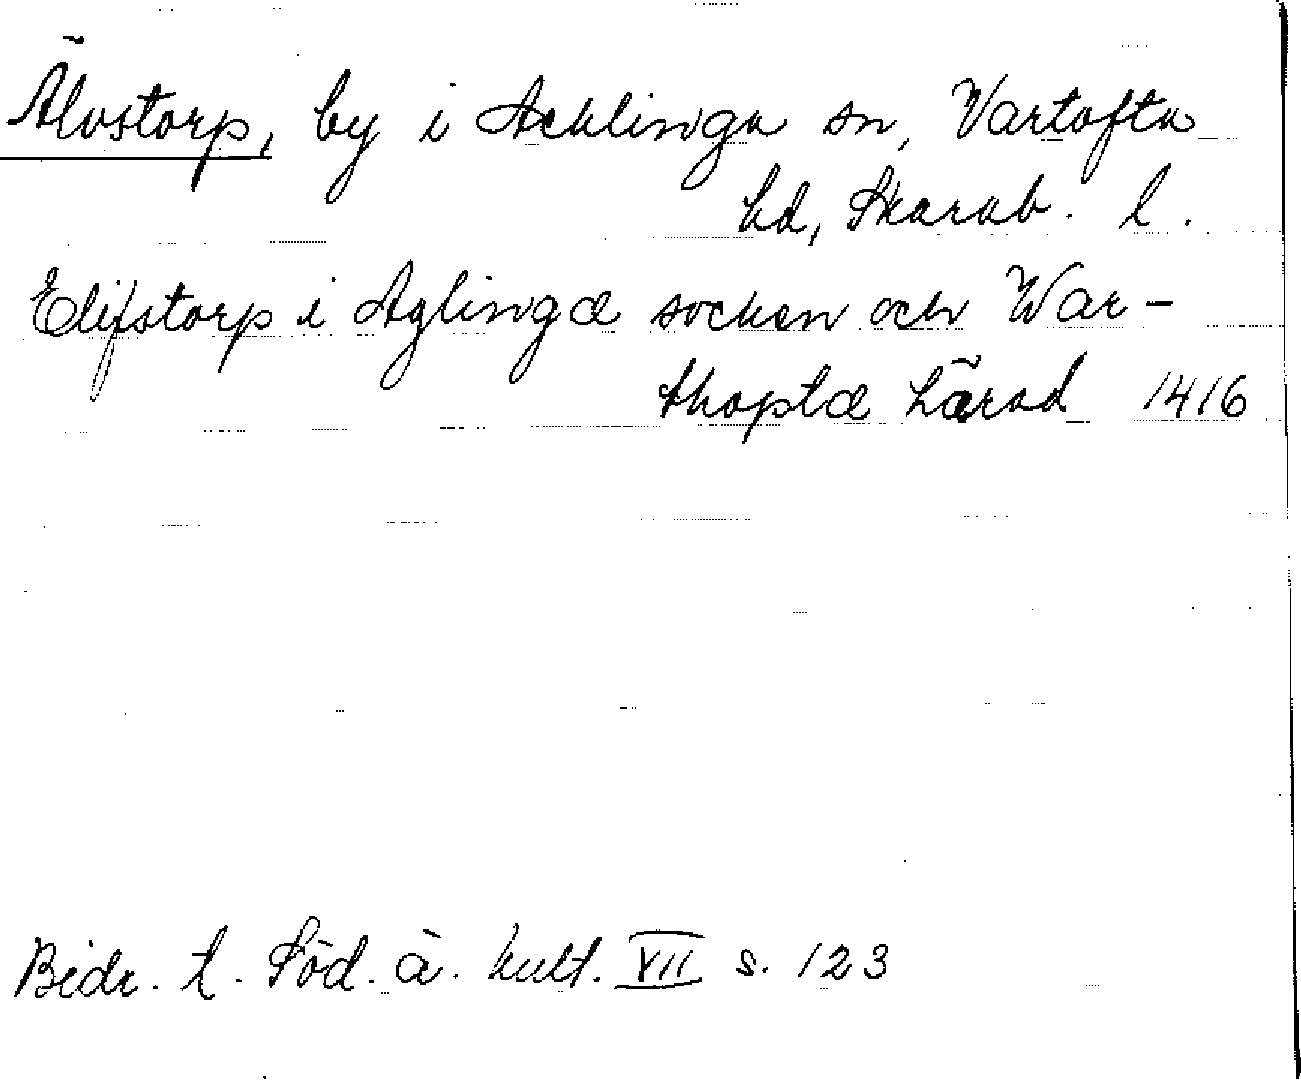 Älvstorp, by i Acklinga sn, Vartofta
hd, Skarab. l.
Elifstorp i Aglingæ socken och War-
thoptæ härad 1416
Bidr. t. Söd. ä. kult. VII s. 123